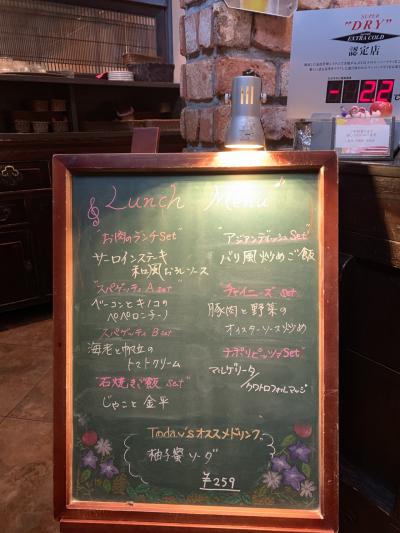 SUPER
"DRY"
EXTRA COLD
認定店
-2.2
Lunch Menu
"お肉のランチSet"
サーロインステーキ
和風おろしソース
"スパゲッティ A set"
ベーコンとキノコの
ペペロンチーノ
スパゲッティ B set
海老と帆立の
トマトクリーム
"石焼きご飯 set"
じゃこと金平
"アジアンディッシュSet"
バリ風炒めご飯
チャイニーズ set
豚肉と野菜の
オイスターソース炒め
ナポリピッツァSet"
マルゲリータ/
クワトロフォルマッジ
Today'sオススメドリンク
柚子蜜ソーダ
¥259